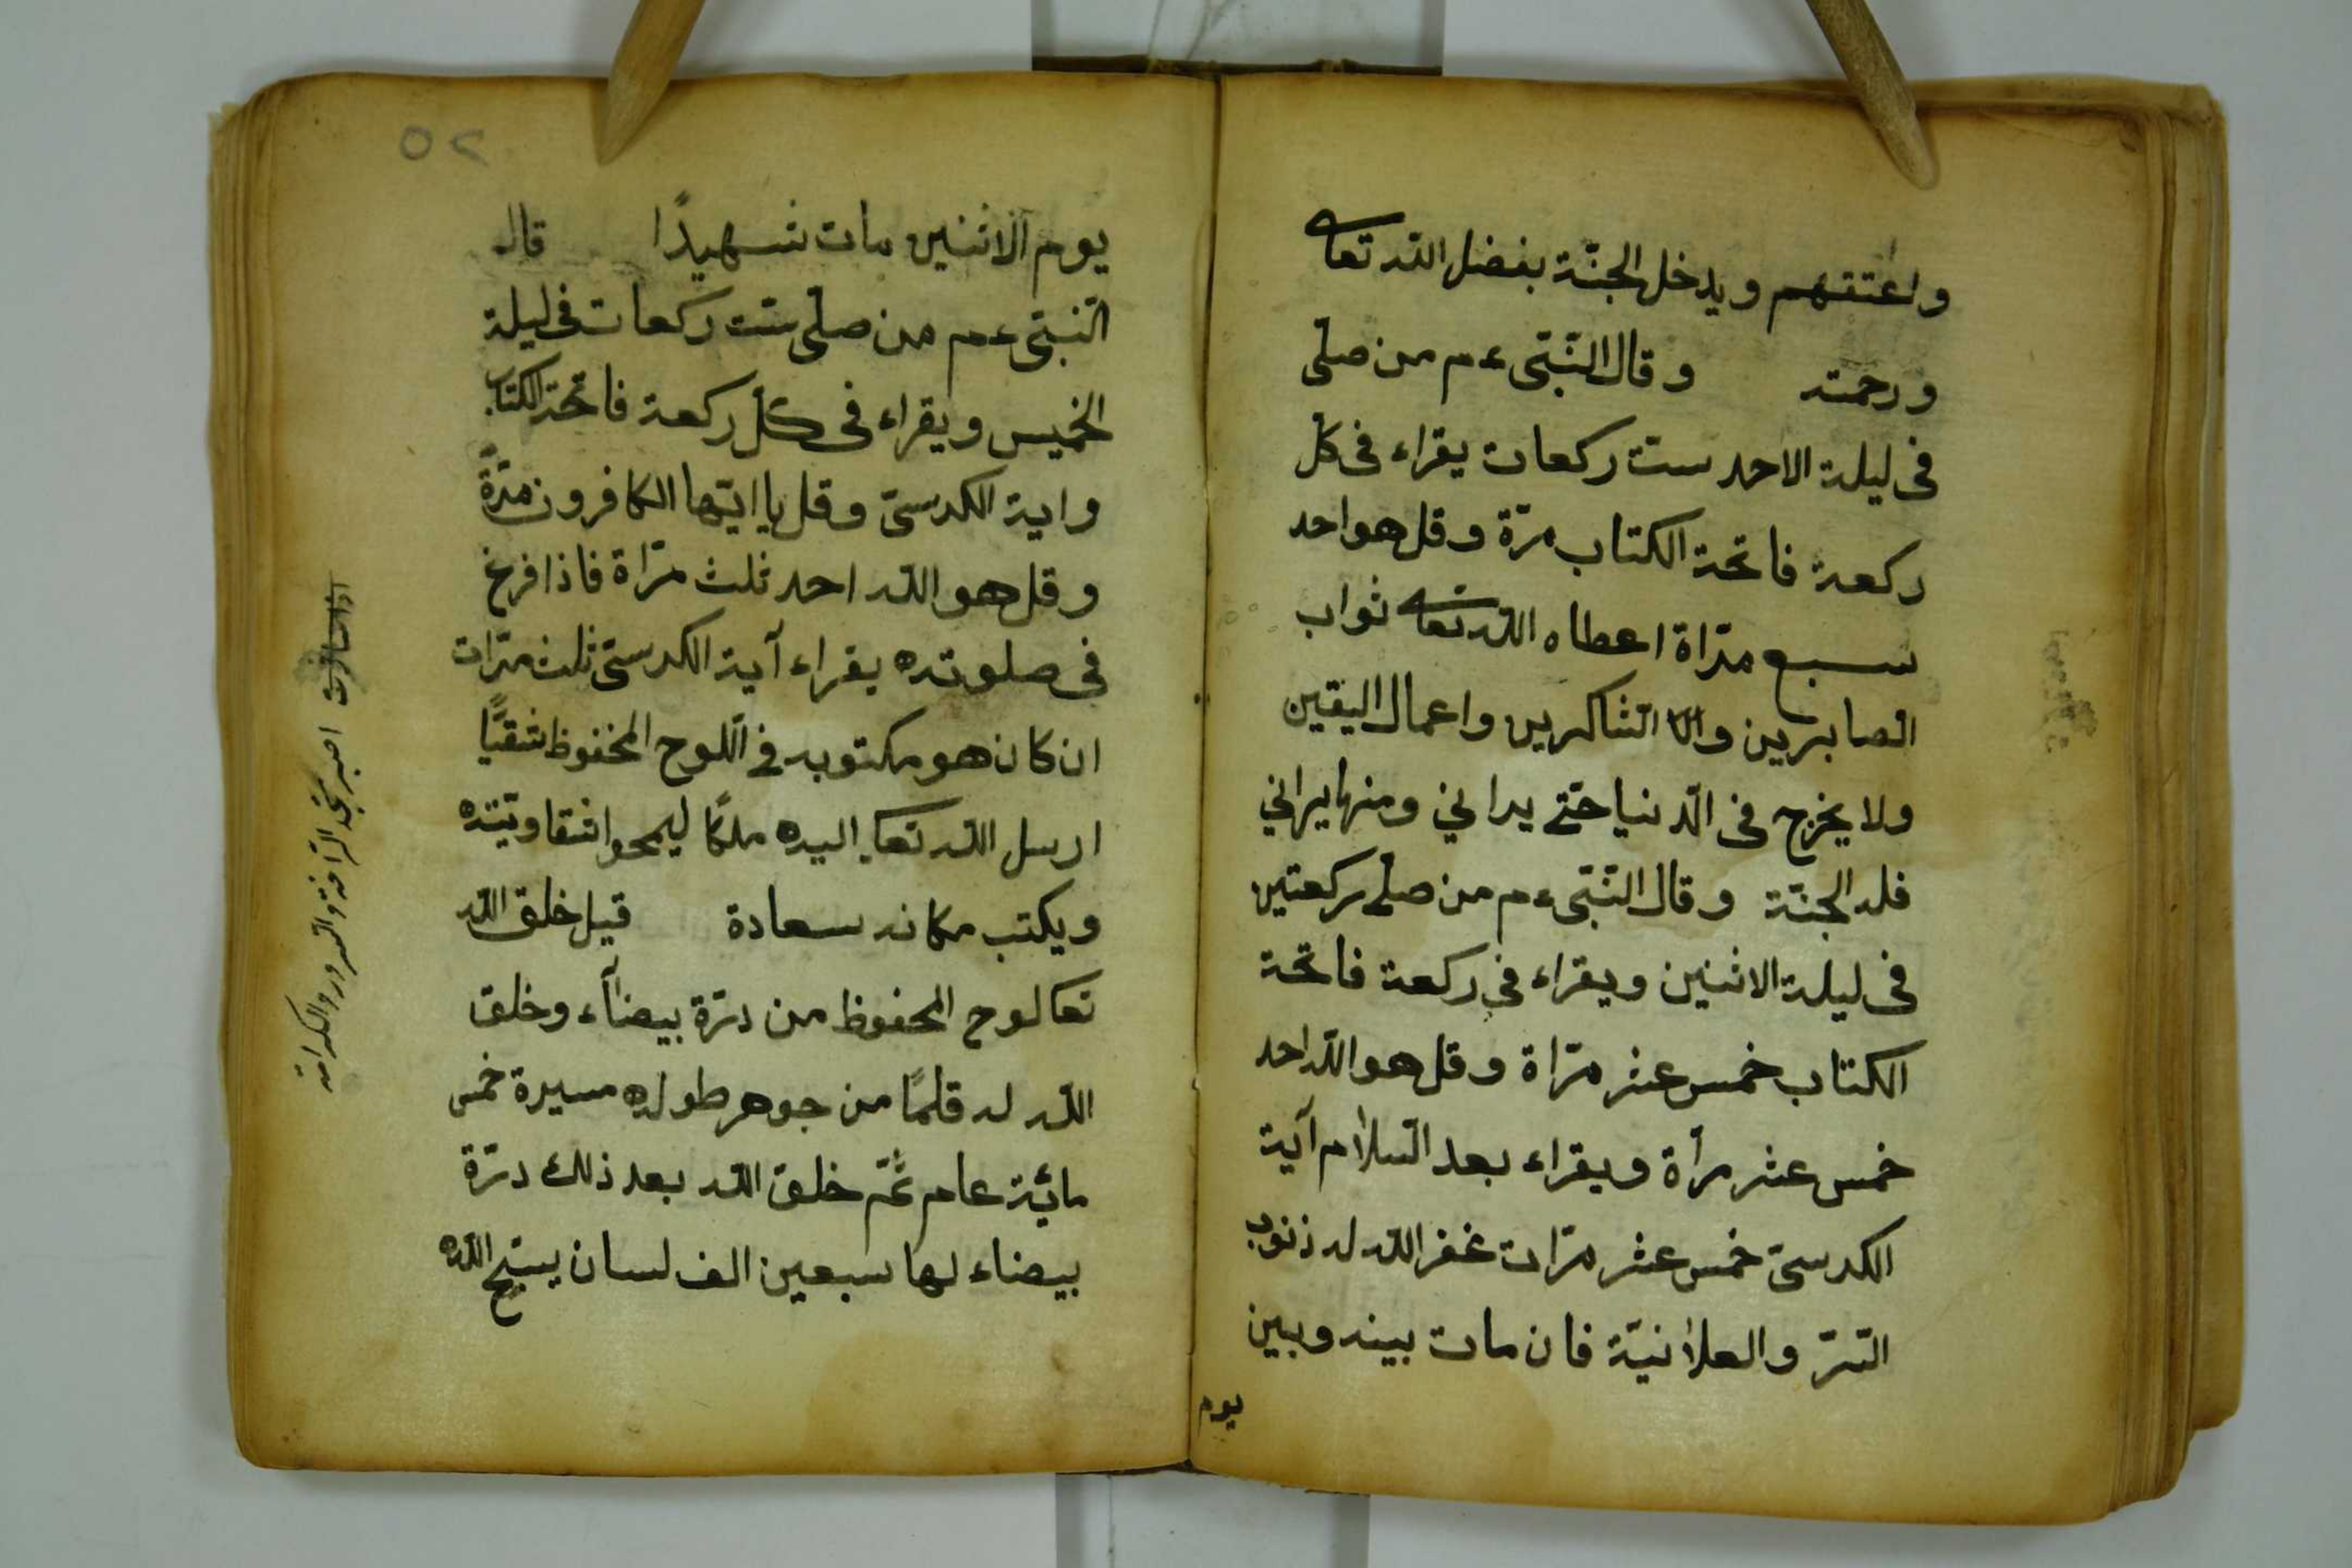 واعتقهم ويدخل الجنّة بفضل الله تعا
ورحمته وقال النّبّى ءم من صلّى
فى ليلة الاحد ست ركعات يقراء فى كل
ركعة فاتحة الكتاب مرّة وقل هو احد
سبع مرّاة اعطاه الله تعا ثواب
الصابرين والا الشّاكرين واعمال اليقين
ولا يخرج فى الدّنيا حتّى يرا ني ومنها يراني
فله الجنّة وقال النّبّى ءم من صلى ركعتين
فى ليلة الاثنين ويقراء فى ركعة فاتحة
الكتاب خمس عشر مرّاة وقل هو الله احد
خمس عشر مرأة ويقراء بعد السّلام آية
الكرسىّ خمس عشر مرّات غفر الله له ذنوب
السّرّ والعلانيّة فان مات بينه وبين
يوم
٥٢
يوم الاثنين مات شهيدًا قال
النّبّى ءم من صلّى ستّ ركعات فى ليلة
الخميس ويقراء فى كلّ ركعة فاتحة الكتاب
واية الكرسىّ وقل يا ايّها الكافرون مرّةً
وقل هو الله احد ثلث مرّاة فاذا فرغ
فى صلوته يقراء آية الكرسىّ ثلث مرّات
ان كان هو مكتوبه فى اللّوح المحفوظ شقيًّا
ارسل الله تعا اليه ملكًا ليمحوا شقاوتيته
ويكتب مكانه سعادة قيل خلق الله
تعا لوح المحفوظ من درّة بيضآء وخلق
الله له قلمًا من جوهر طوله مسيرة خمس
مائة عام ثُمّ خلق الله بعد ذلك درّة
بيضاء لها سبعين الف لسان يسبّح الله
والسرور والكرامة